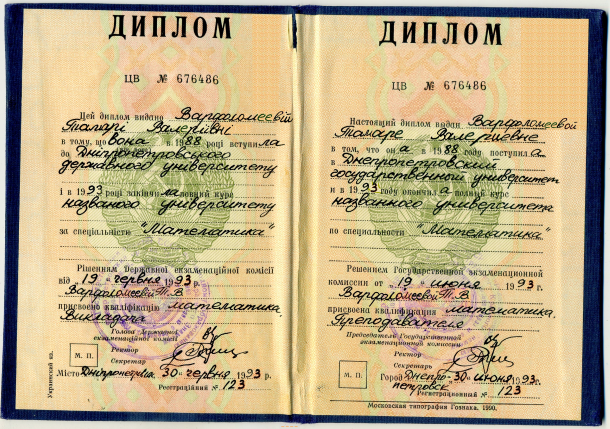 ДИПЛОМ
ЦВ № 676486
Цей диплом видано Варфоломеевій
Тамарі Валеріївні
в тому, що вона в 1988 році вступила
до Дніпропетровського
державного університету
і в 1993 році закінчила повний курс
названого університету
за спеціальністю "Математика"
Рішенням Державної екзаменаційної комісії
від 19 червня 1993 р.
Варфоломеевой Т.В.
присвоєно кваліфікацію математика.
Викладача
Голова Державної
екзаменаційної комісії
Ректор
Секретар
М. П.
Місто Дніпропетровськ 30 червня 1993 р.
Реєстраційний № 123
Украинский яз.
ДИПЛОМ
ЦВ № 676486
Настоящий диплом выдан Варфоломеевой
Тамаре Валериевне
в том, что она в 1988 году поступила
в Днепропетровский
государственный университет
и в 1993 году окончила полный курс
названного университета
по специальности "Математика"
Решением Государственной экзаменационной
комиссии от 19 июня 1993 г.
Варфоломеевой Т.В.
присвоена квалификация математика.
Преподавателя
Председатель Государственной
экзаменационной комиссии
Ректор
Секретарь
М. П.
Город Днепро- 30 июня 1993 г.
петровск
Регистрационный № 123
Московская типография Гознака. 1990.